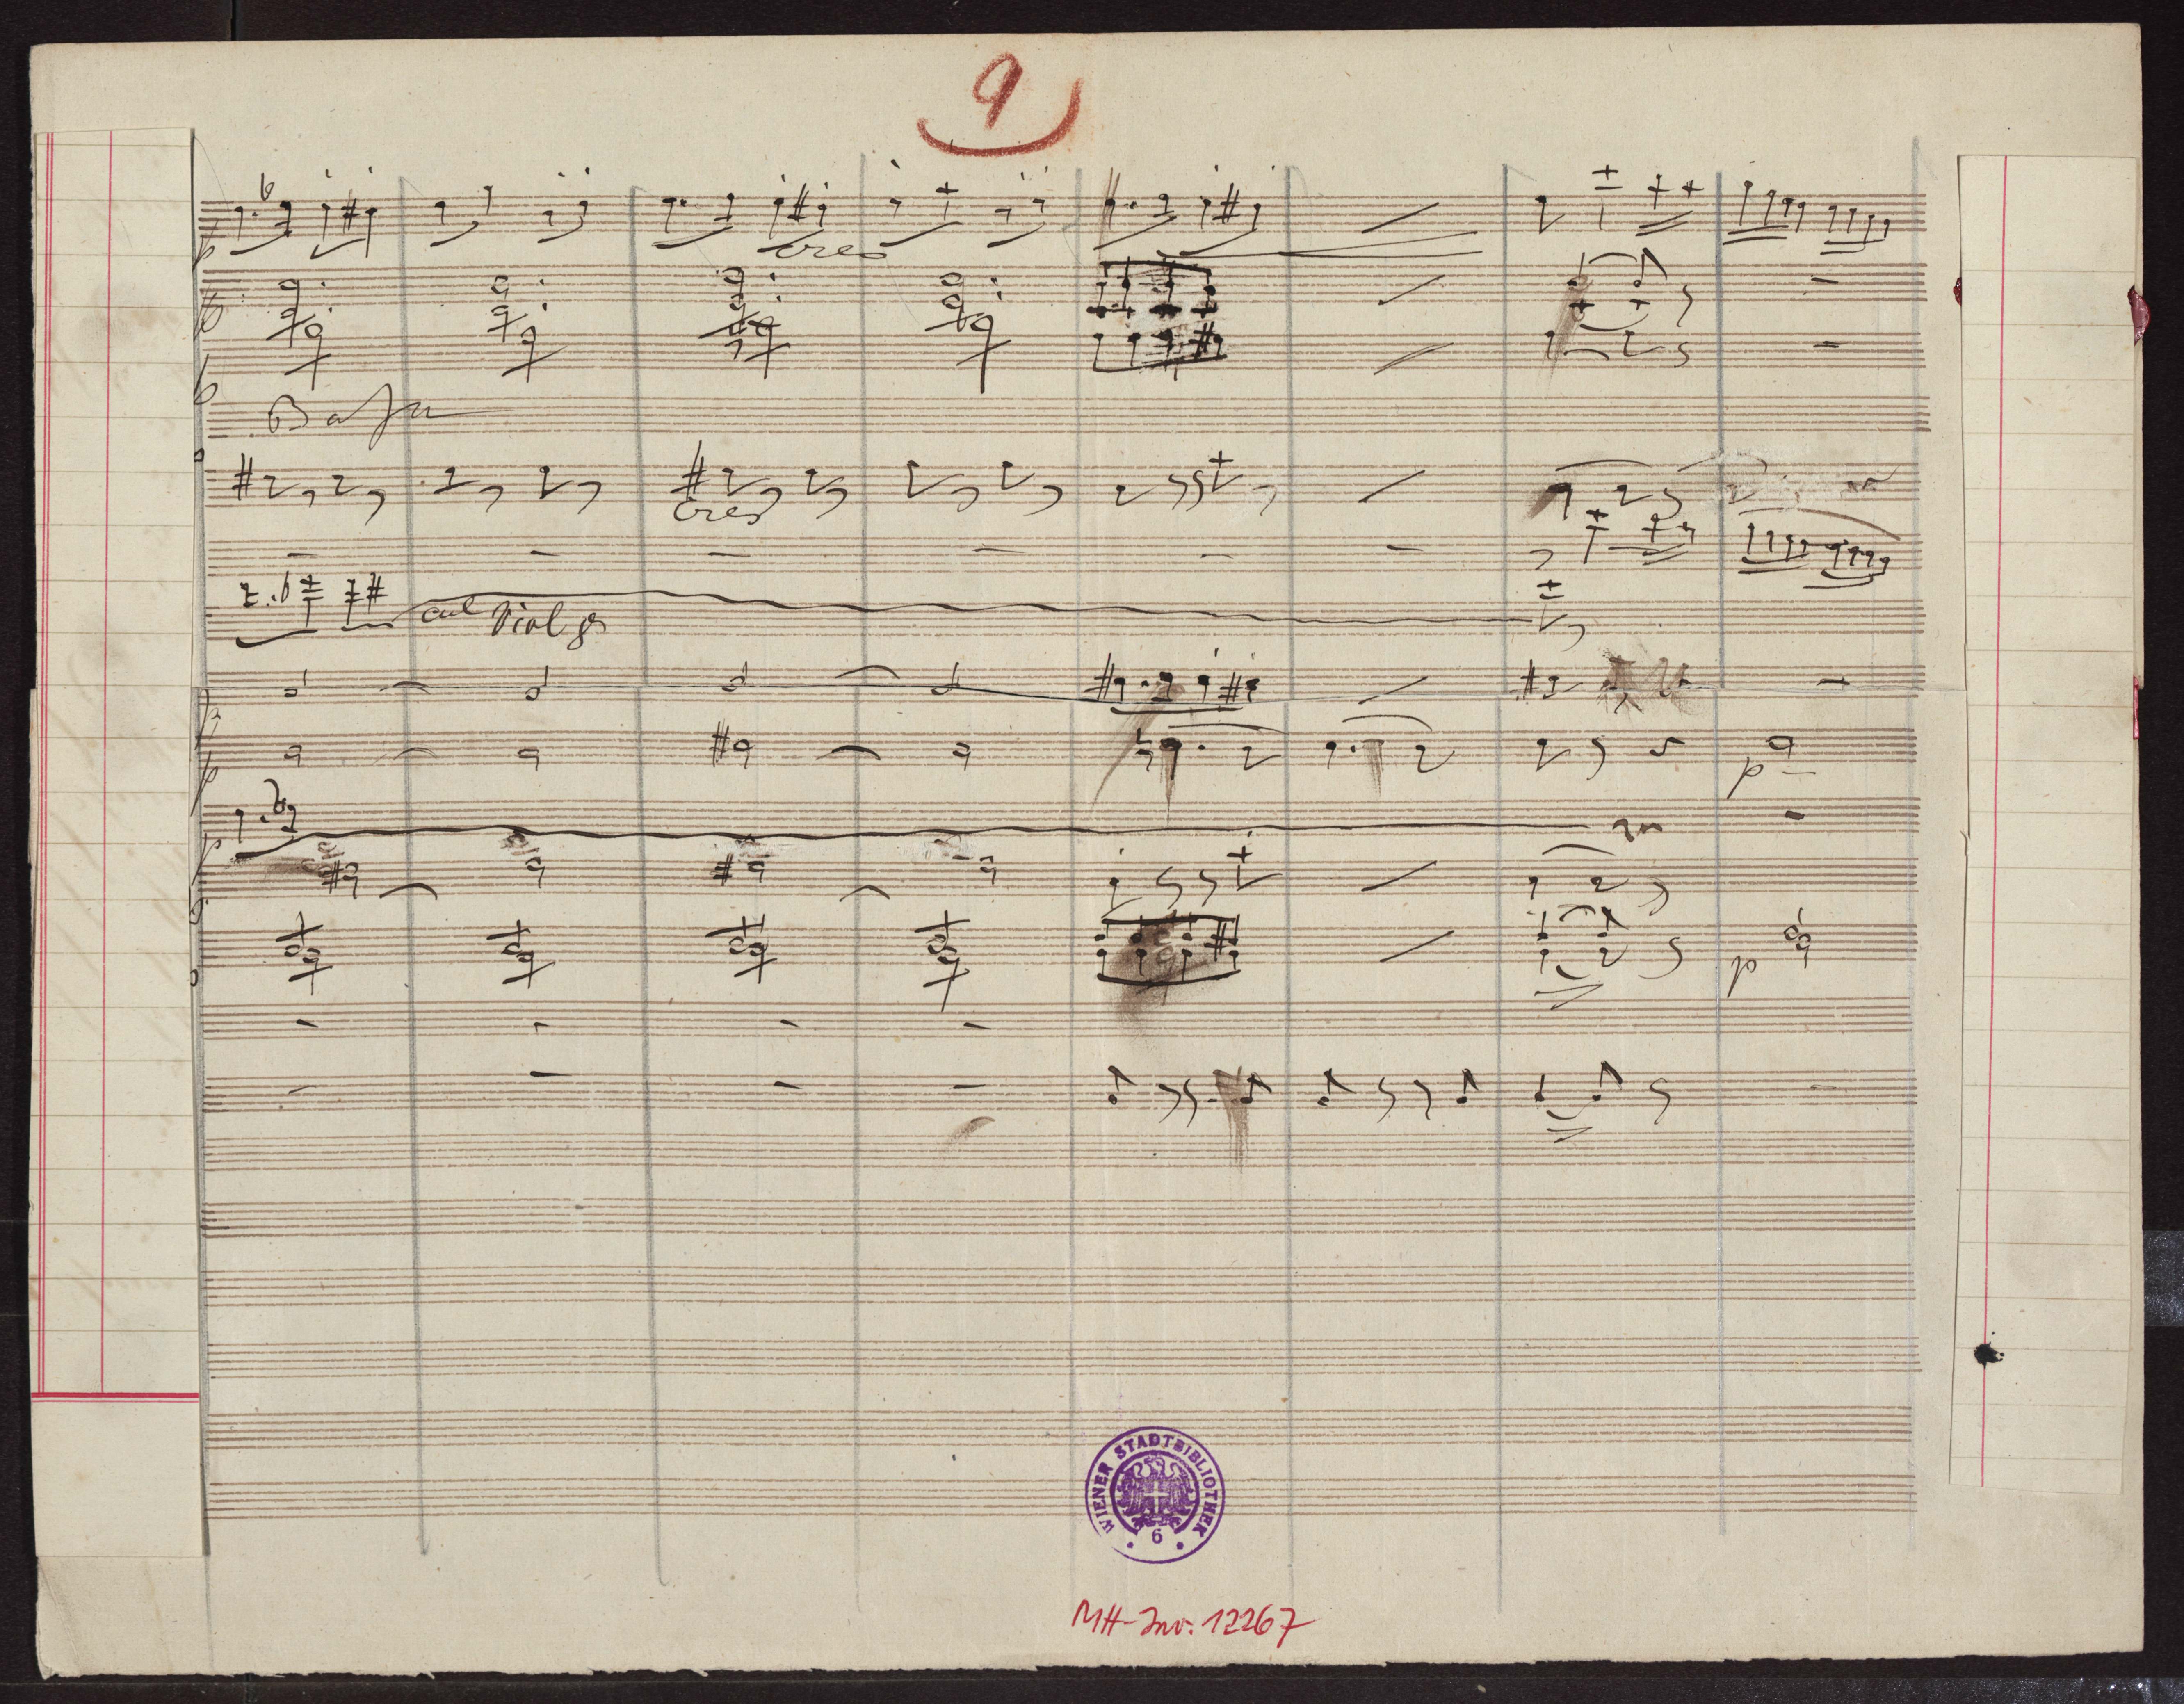 9
cres
cres
col Viol
p
p
WIENER STADTBIBLIOTHEK
6
MH-Inv: 12267